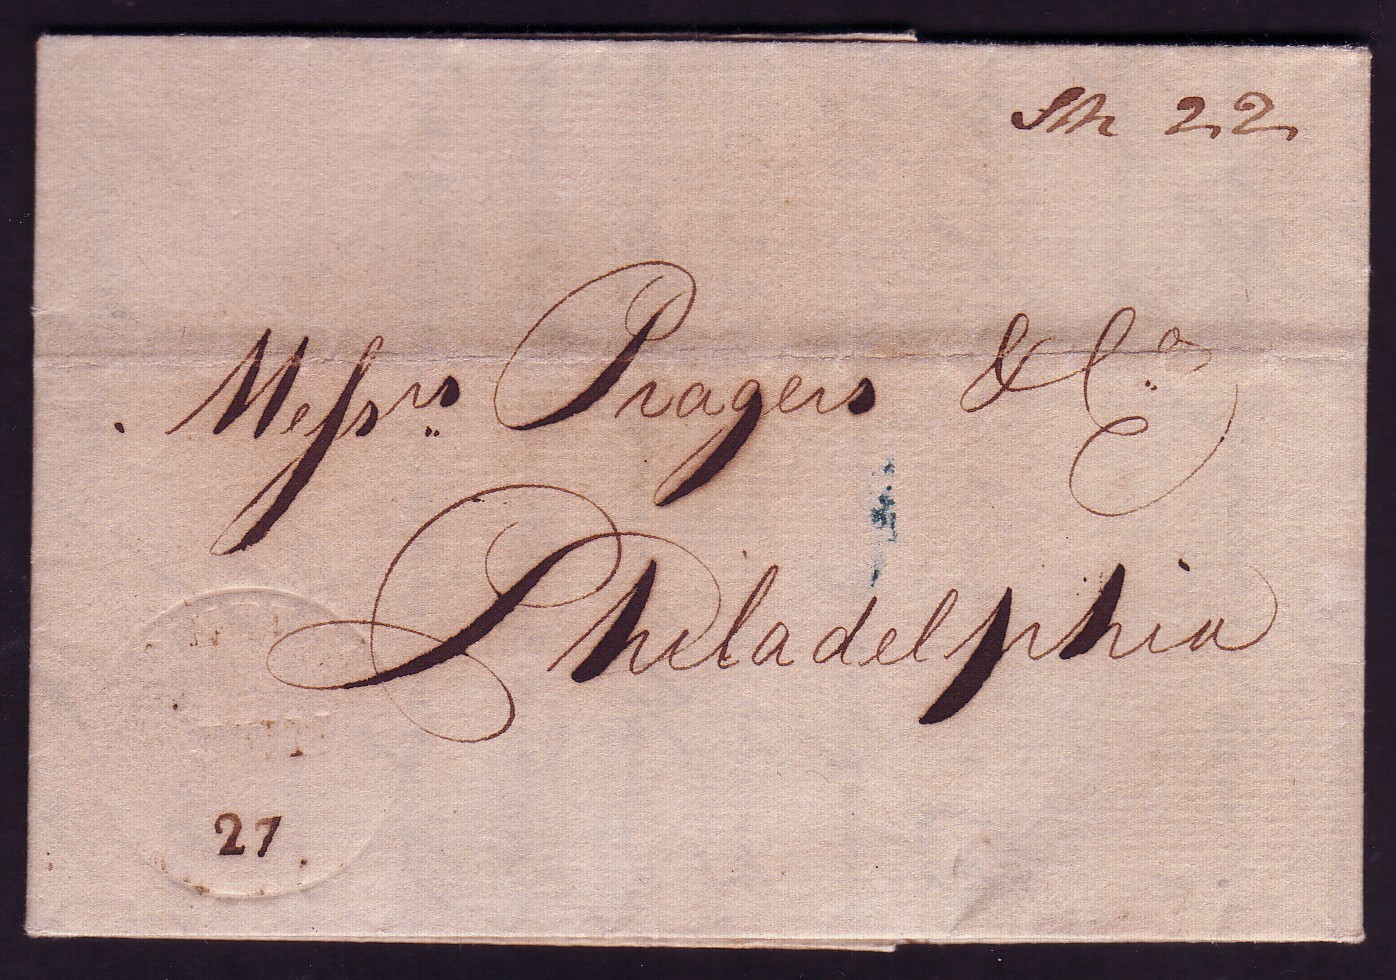 Sh 22
Meſsrs Pragers & Co
Philadelphia
27